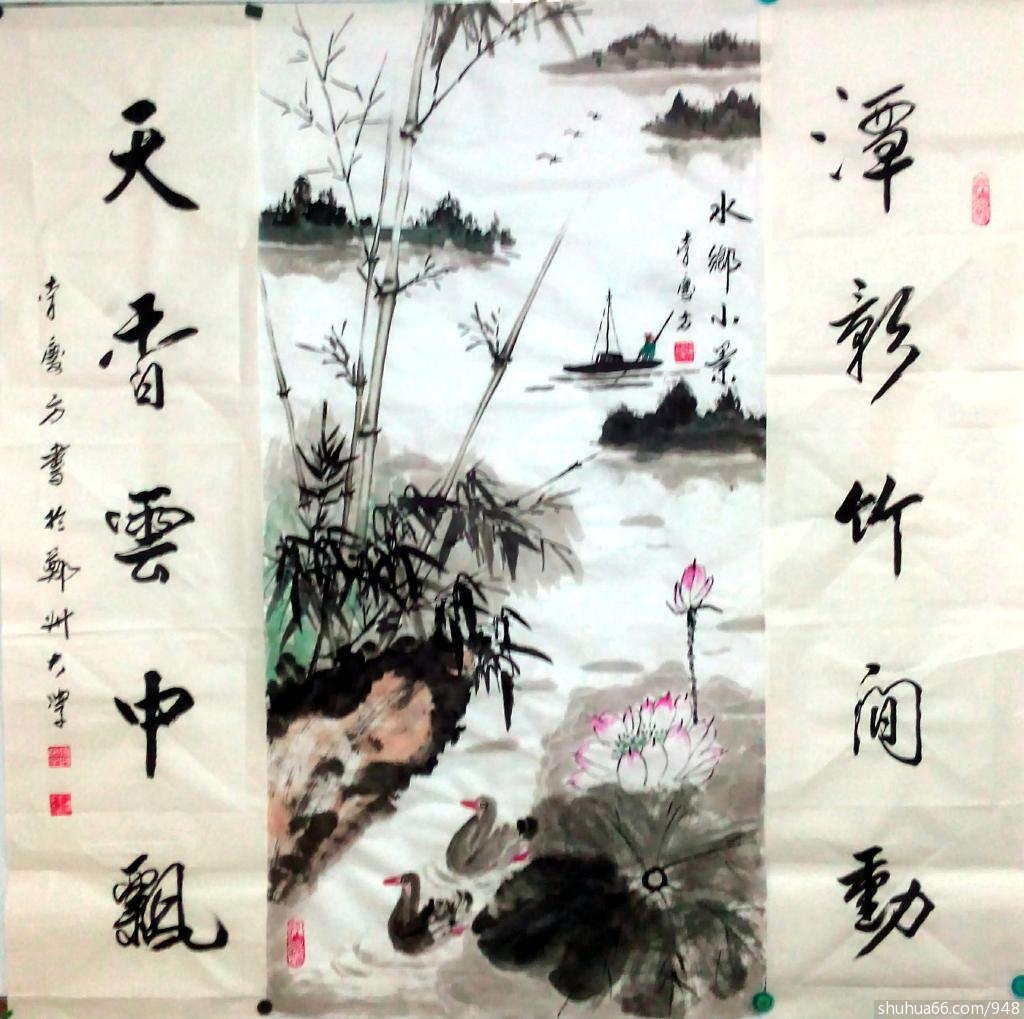 潭彰竹間動
水鄉小景
慶方
天香雲中飄
慶方書於鄭州大學
shuhua66.com/948